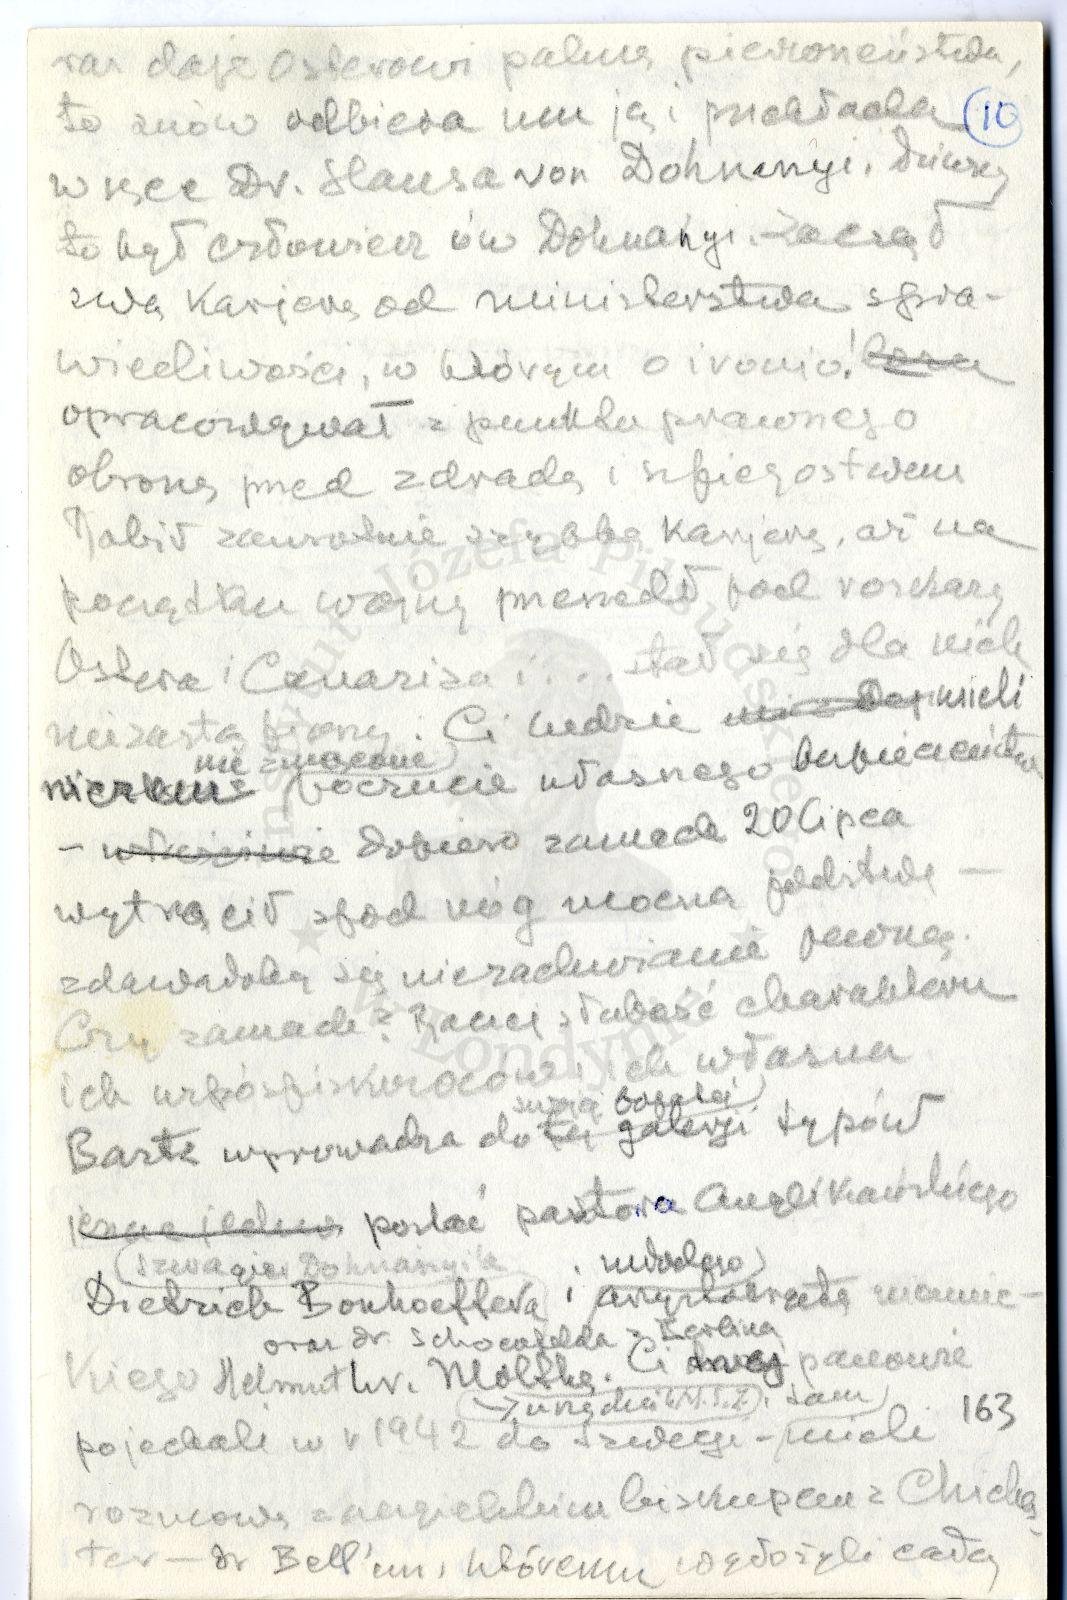 raz daje Osterowi palmę pierwszeństwa,
to znów odbiera mu ją i przekłada (10)
w ręce Dr. Hansa von Dohnanyi. Dziwny
to był człowiek ów Dohnányi. Zaczął
swą karjerę od ministerstwa spra-
wiedliwości, w którym o ironio!
opracowywał z punktu prawnego
obronę przed zdradą i szpiegostwem
Robił zawrotnie szybką karjerę, aż na
początku wojny przeszedł pod rozkazy
Ostera i Canarisa i... stał się dla nich
niezastąpiony. Ci ludzie mieli
nie zmącone
niczem poczucie własnego bezpieczeństwa
– właściwie dopiero zamach 20 lipca
wytrącił spod nóg mocną podstawę –
zdawałoby się niezachwianie pewną.
Czy zamach? Raczej słabość charakteru
ich współspiskowców i ich własna
swojej bogatej
Bartz wprowadza do tej galerji typów
jeszcze jedną postać pastora Anglikańskiego
szwagier Dohnányi'a
młodego
Dietrich Bonhoeffera i arystokratę niemiec-
oraz dr. Schoenfelda z Berlina
kiego Helmuth v. Moltke. Ci panowie
urzędnik M.S.Z. i tam 163
pojechali w r 1942 do Szwecji – mieli
rozmowę z angielskim biskupem z Chiches-
ter – dr Bell'em, któremu wyłożyli całą